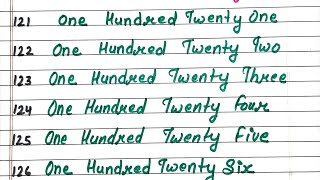 121 One Hundred Twenty One
122 One Hundred Twenty Two
123 One Hundred Twenty Three
124 One Hundred Twenty four
125 One Hundred Twenty Five
126 One Hundred Twenty Six